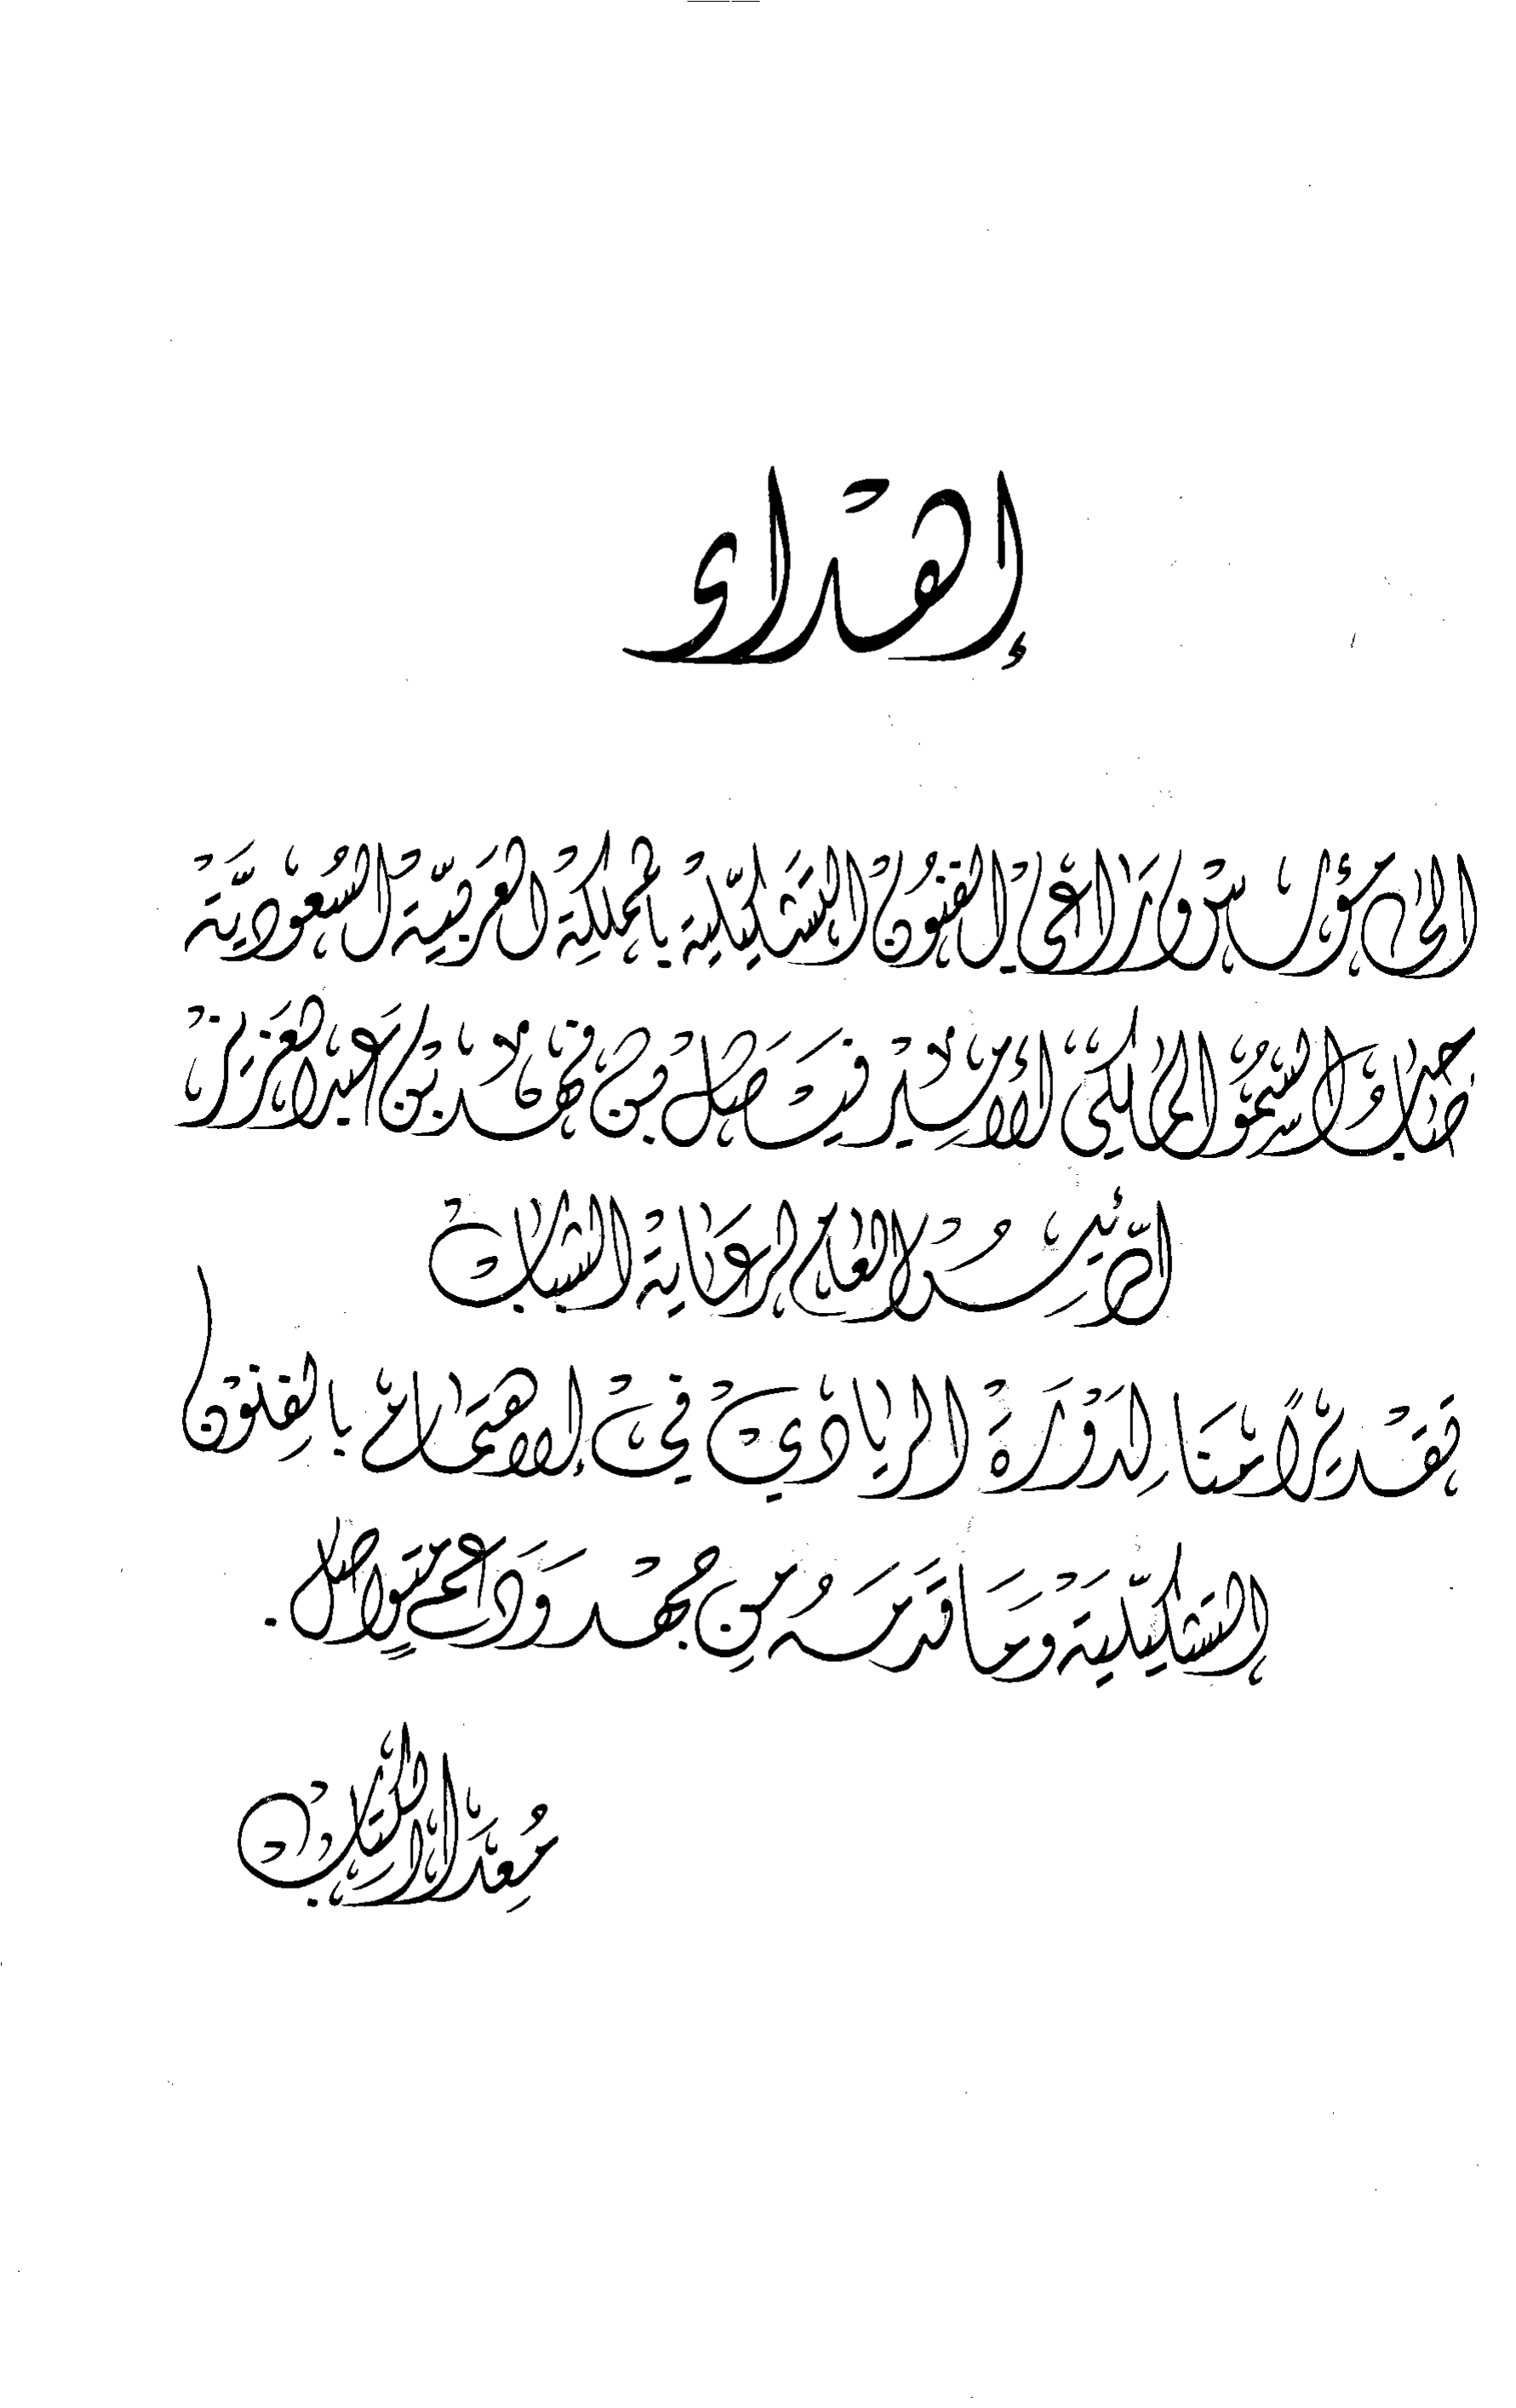 إهداء
إلى مؤسس وراعي الفنون التشكيلية بالمملكة العربية السعودية
صاحب السمو الملكي الأمير فيصل بن فهد بن عبد العزيز
الرئيس العام لرعاية الشباب
تقديراً منا لدوره الريادي في الاهتمام بالفنون
التشكيلية وما قدمه من جهد ودعم متواصل.
معدا الكتاب